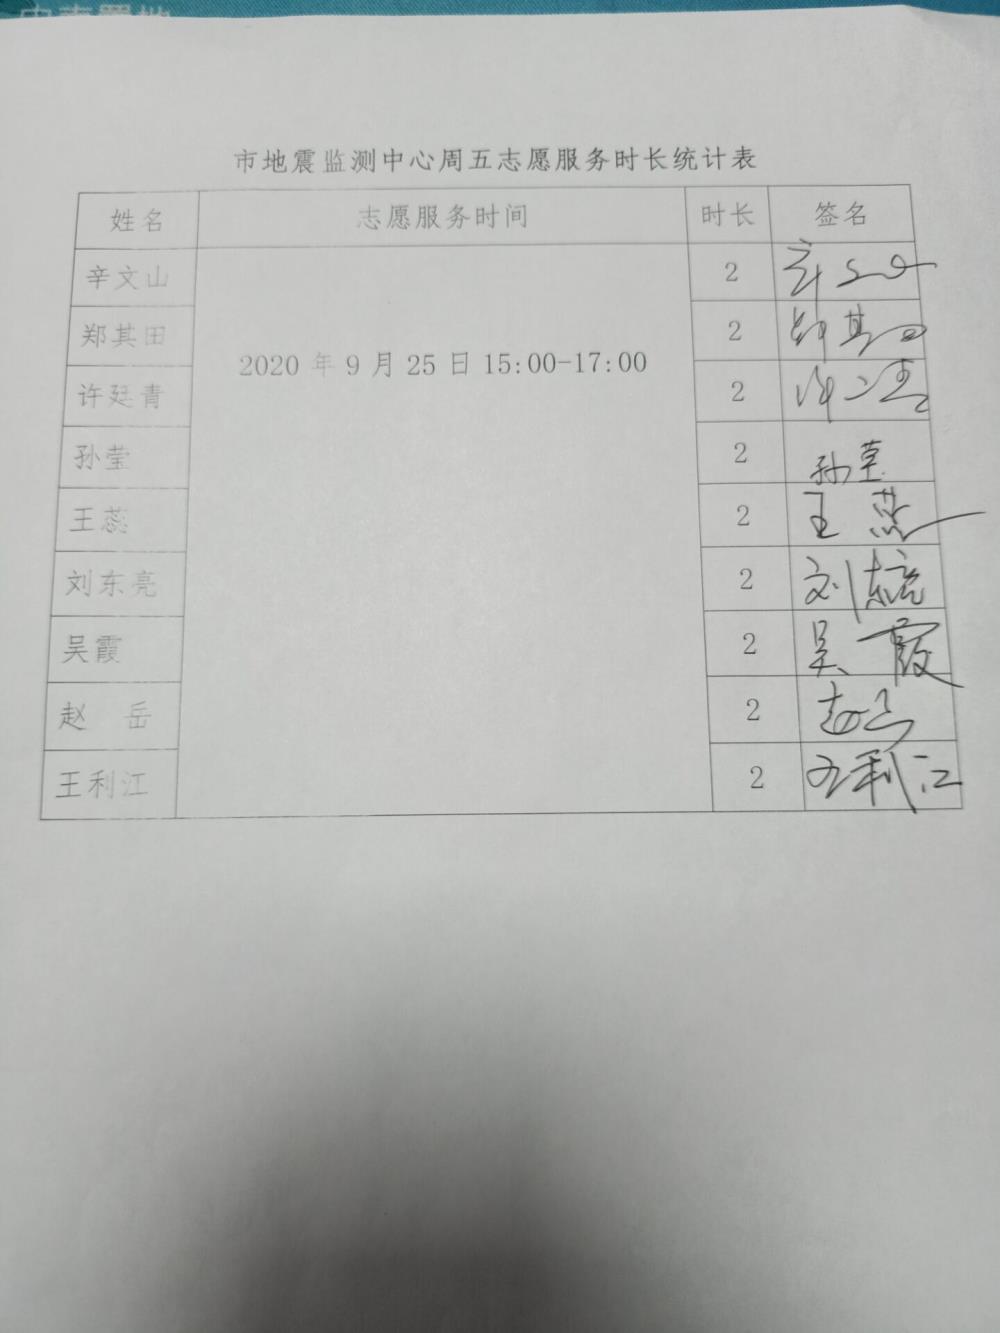 市地震监测中心周五志愿服务时长统计表
姓名 志愿服务时间 时长 签名
辛文山 2 辛文山
郑其田 2 郑其田
2020 年 9 月 25 日 15:00-17:00
许廷青 2 许廷青
孙莹 2 孙莹
王蕊 2 王蕊
刘东亮 2 刘东亮
吴霞 2 吴霞
赵 岳 2 赵岳
王利江 2 王利江